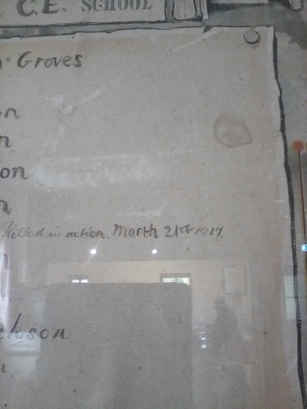 C.E. SCHOOL
Groves
on
n
on
n
Killed in action. March 21st 1917
ckson